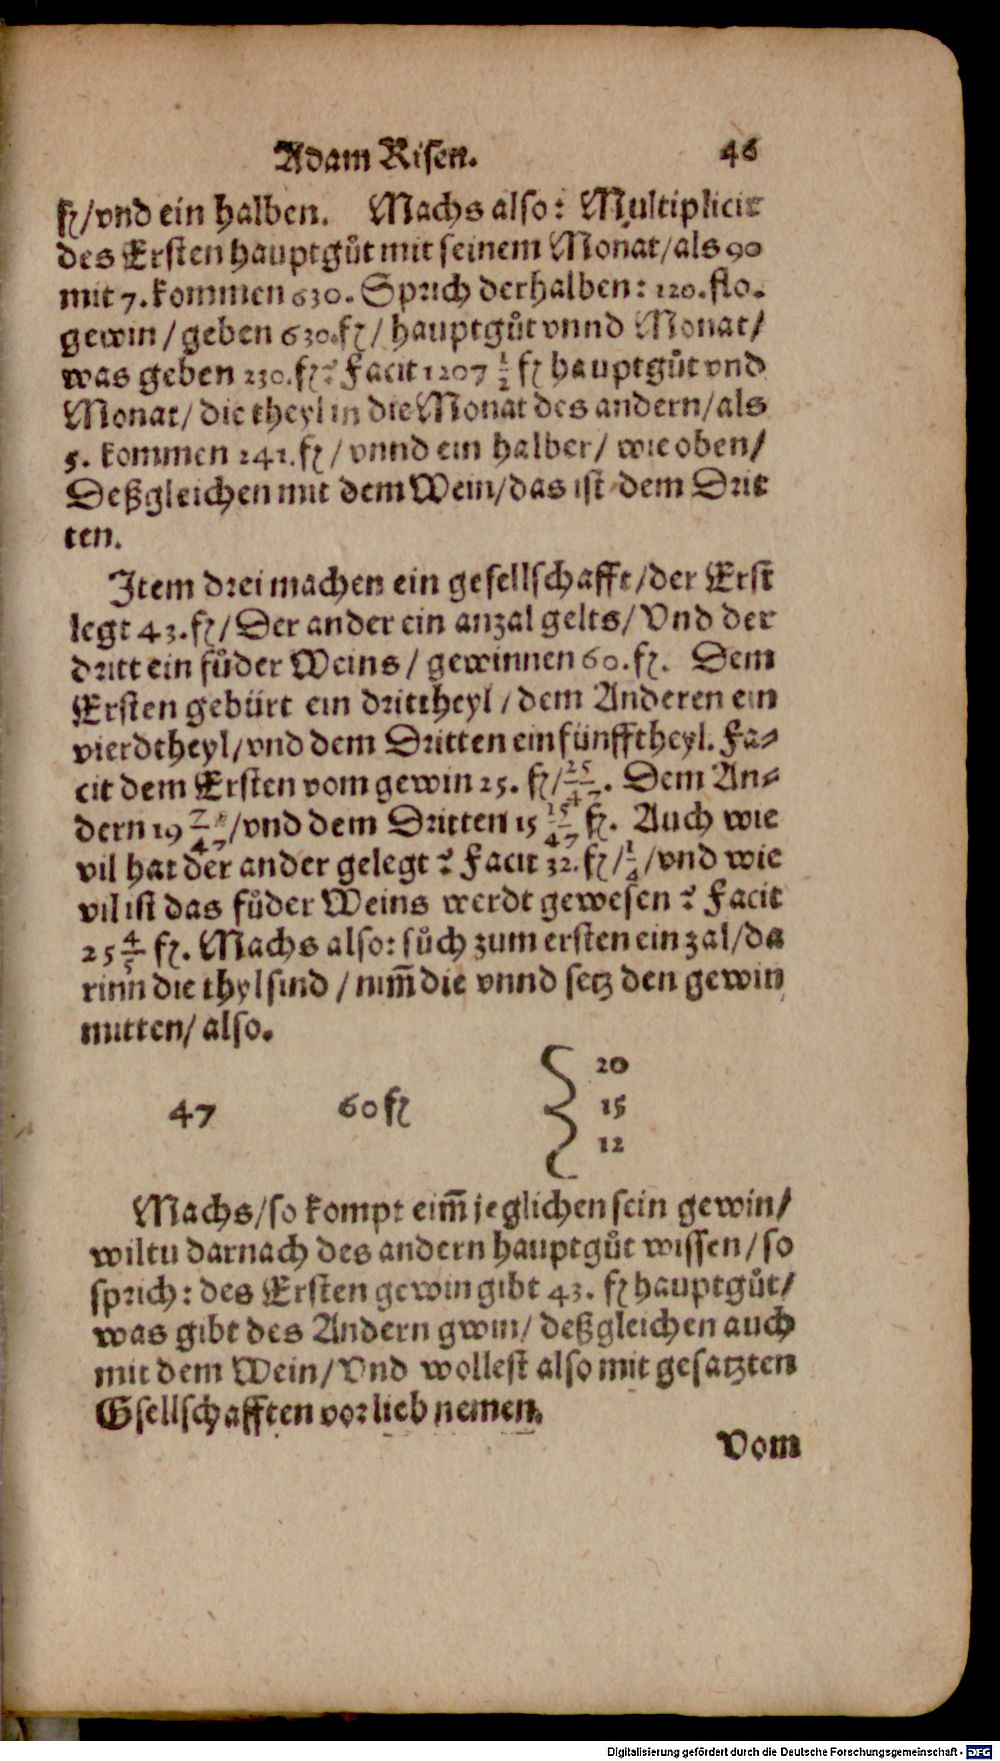 Adam Risen. 46
fl/vnd ein halben. Machs also: Multiplicir
des Ersten hauptgůt mit seinem Monat/als 90
mit 7. kommen 630. Sprich derhalben: 120. flo.
gewin/geben 630. fl/hauptgůt vnnd Monat/
was geben 230. fl? Facit 1207 1/2 fl hauptgůt vnd
Monat/die theyl in die Monat des andern/als
5. kommen 241. fl/vnnd ein halber/wie oben/
Deßgleichen mit dem Wein/das ist dem Drit
ten.
Item drei machen ein gesellschafft/der Erst
legt 43. fl/Der ander ein anzal gelts/Vnd der
dritt ein fůder Weins/gewinnen 60. fl. Dem
Ersten gebürt ein drittheyl/dem Anderen ein
vierdtheyl/vnd dem Dritten ein fünfftheyl. Fa⸗
cit dem Ersten vom gewin 25. fl/25/47. Dem An⸗
dern 19 7/47/vnd dem Dritten 15 15/47 fl. Auch wie
vil hat der ander gelegt? Facit 32. fl/1/4/vnd wie
vil ist das fůder Weins werdt gewesen? Facit
25 4/5 fl. Machs also: sůch zum ersten ein zal/da
rinn die thyl sind/nim̄ die vnnd setz den gewin
mitten/also.
47 60 fl 20
15
12
Machs/so kompt eim̄ jeglichen sein gewin/
wiltu darnach des andern hauptgůt wissen/so
sprich: des Ersten gewin gibt 43. fl hauptgůt/
was gibt des Andern gwin/deßgleichen auch
mit dem Wein/Vnd wollest also mit gesatzten
Gsellschafften vorlieb nemen.
Vom
Digitalisierung gefördert durch die Deutsche Forschungsgemeinschaft - DFG